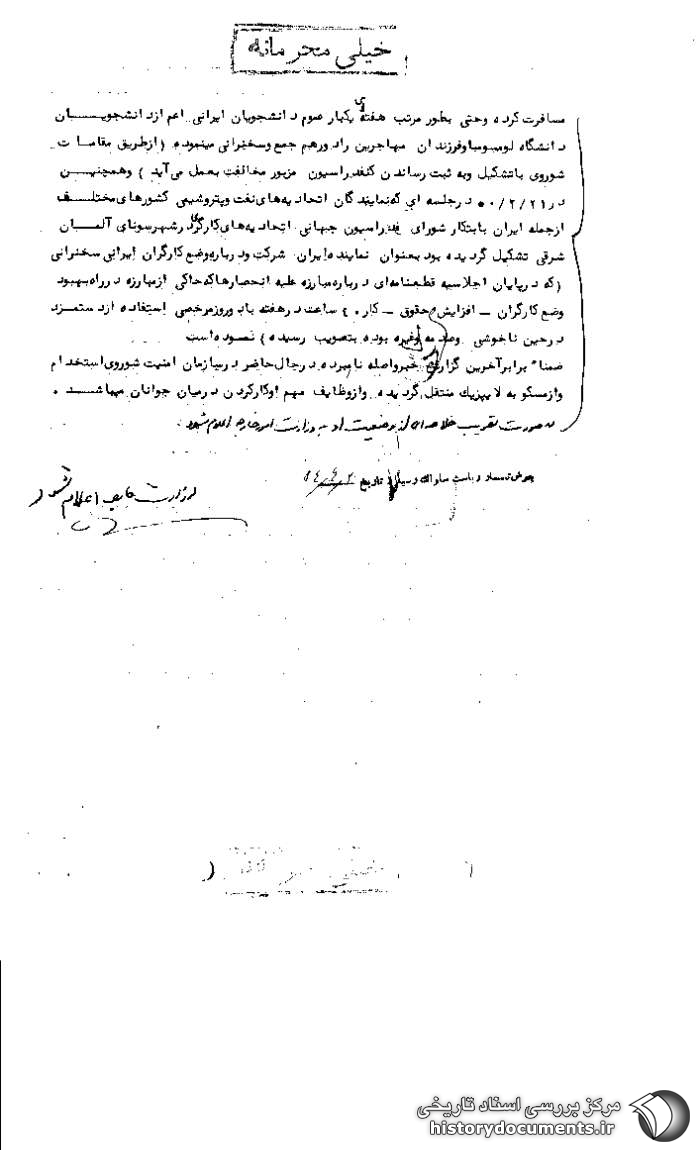 خیلی محرمانه
مسافرت کرده و حتی بطور مرتب هفته‌ای یکبار عموم دانشجویان ایرانی اعم از دانشجویان
دانشگاه لومومبا و فرزندان مهاجرین را دورهم جمع و سخنرانی مینموده (از طریق مقامات
شوروی با تشکیل و به ثبت رساندن کنفدراسیون مزبور مخالفت بعمل می‌آید) و همچنین
در ۵۰/۲/۲۱ در جلسه ای که نمایندگان اتحادیه‌های نفت و پتروشیمی کشورهای مختلف
از جمله ایران با بتکار شورای فدراسیون جهانی اتحادیه‌های کارگری در شهر سونای آلمان
شرقی تشکیل گردیده بود بعنوان نماینده ایران شرکت و درباره وضع کارگران ایرانی سخنرانی
(که در پایان اجلاسیه قطعنامه‌ای درباره مبارزه علیه انحصارها که حاکی از مبارزه در راه بهبود
وضع کارگران - افزایش حقوق - کار ۴۰ ساعت در هفته با دو روز مرخصی استفاده از دستمزد
در حین ناخوشی و صدمه و غیره بوده بتصویب رسیده) نموده است
ضمناً برابر آخرین گزارش خبر واصله نامبرده در حال حاضر در سازمان امنیت شوروی استخدام
و از مسکو به لایپزیک منتقل گردیده و از وظایف مهم او کار کردن در میان جوانان میباشد .
بصورت تقریب خلاصه‌ای از وضعیت او به وزارت امور خارجه اعلام شود
بعرض تیمسار ریاست ساواک رسید تاریخ
به وزارت خارجه اعلام نشود
مرکز بررسی اسناد تاریخی
historydocuments.ir